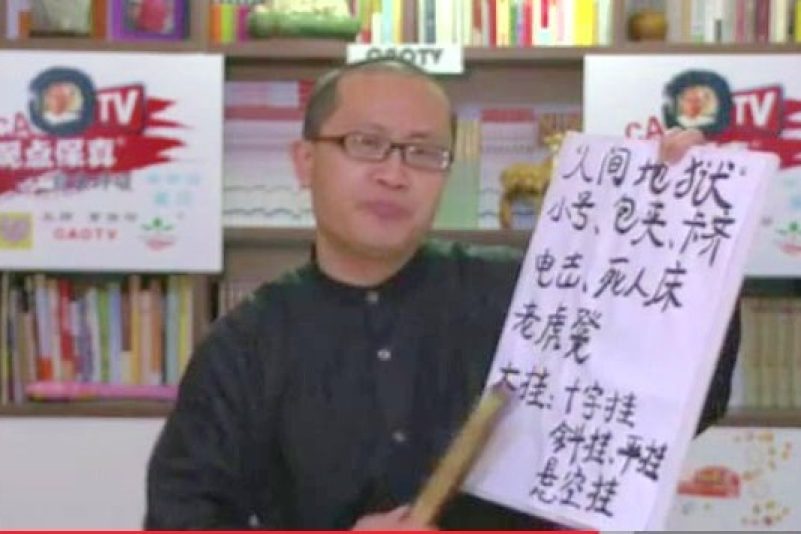 CAOTV
CA TV
观点保真
CAOTV
TV
人间地狱
小号、包夹、
电击、死人床
老虎凳
大挂:十字挂
斜挂、平挂
悬空挂